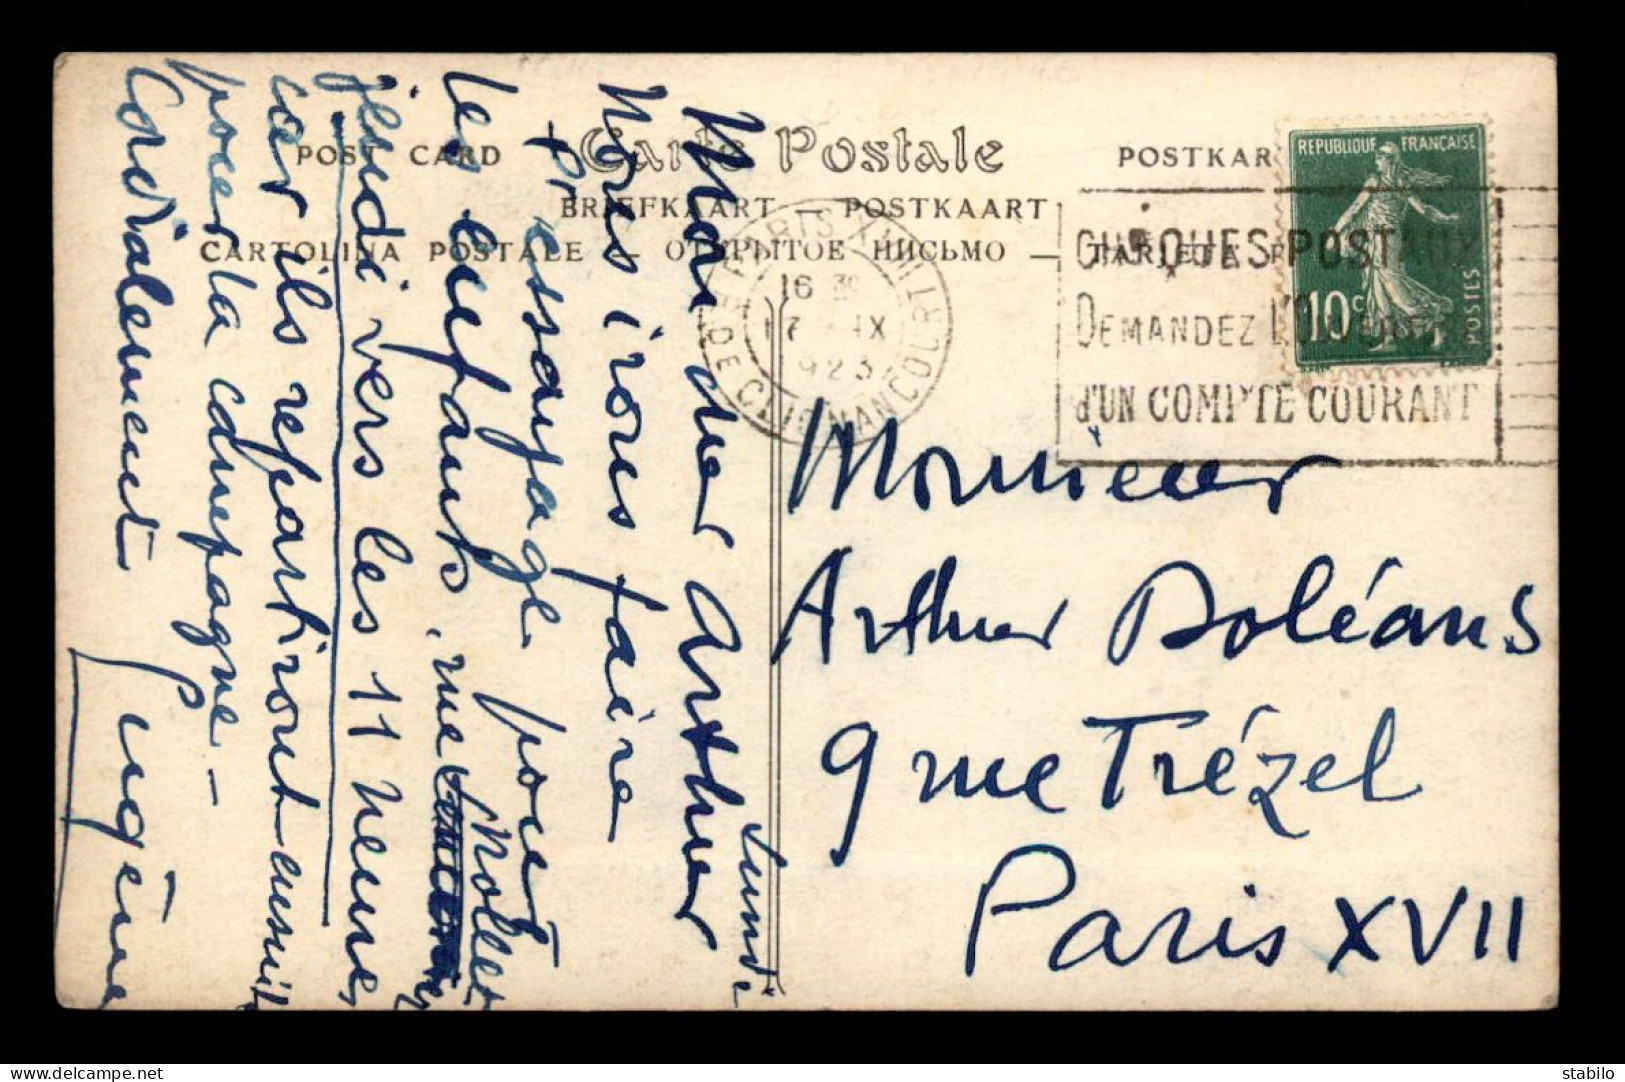 POST CARD Carte Postale POSTKAR
BRIEFKAART — POSTKAART
CARTOLINA POSTALE — ОТКРЫТОЕ ПИСЬМО — TARJETA P
REPUBLIQUE FRANÇAISE
10c
POSTES
PARIS XVIII
16 30
17 IX
1923
R. DE CLIGNANCOURT
CHEQUES POSTAUX
DEMANDEZ L'OUVERTURE
D'UN COMPTE COURANT
Lundi
Mon cher Arthur
Nous irons faire
l'essayage pour
les enfants, rue Nollet
jeudi vers les 11 heures
car ils repartiront ensuite
pour la campagne —
Cordialement
Eugène
Monsieur
Arthur Doléans
9 rue Trézel
Paris XVII
delcampe.net
stabilo